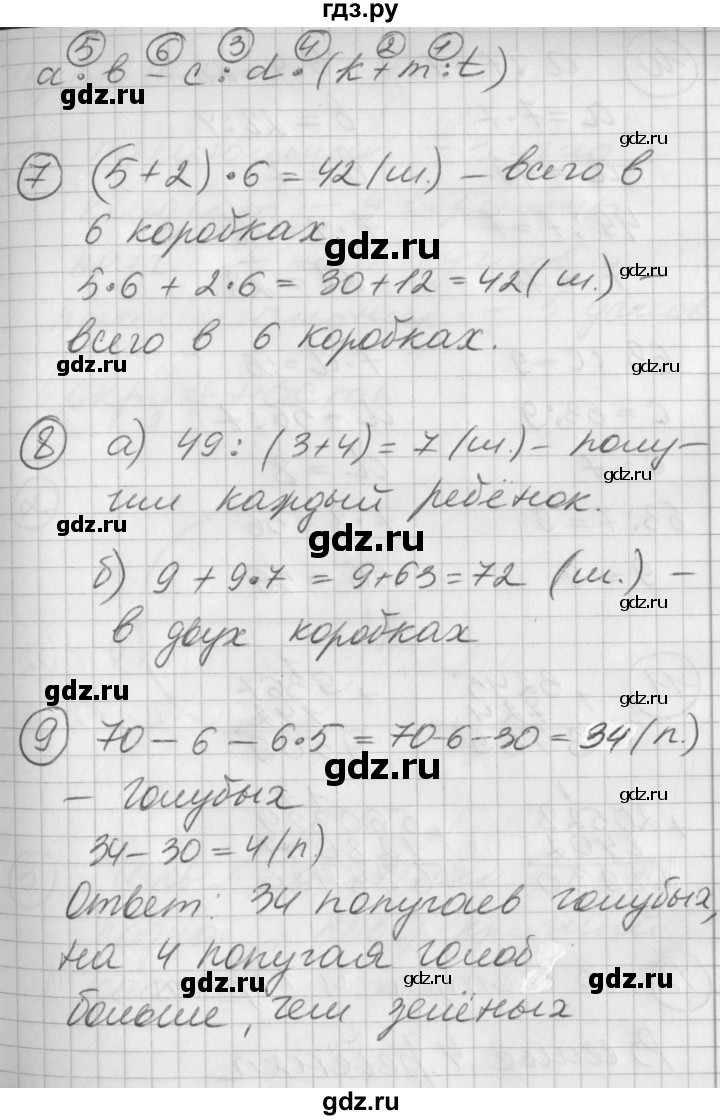 гдз.ру
5 6 3 4 2 1
a : b - c : d · (k + m : t)
7 (5+2)·6 = 42 (ш.) – всего в
gdz.ru
6 коробках.
gdz.ru
5·6 + 2·6 = 30+12 = 42 (ш.) –
gdz.ru
всего в 6 коробках.
gdz.ru gdz.ru
8 а) 49 : (3+4) = 7 (ш.) – полу-
gdz.ru
чил каждый ребёнок.
gdz.ru gdz.ru
б) 9 + 9·7 = 9+63 = 72 (ш.) –
gdz.ru
в двух коробках
gdz.ru gdz.ru
9 70 – 6 – 6·5 = 70-6-30 = 34 (п.)
gdz.ru
– голубых
gdz.ru
34 – 30 = 4 (п)
Ответ: 34 попугаев голубых,
на 4 попугая голоб
gdz.ru gdz.ru gdz.ru
больше, чем зелёных
gdz.ru gdz.ru
gdz.ru